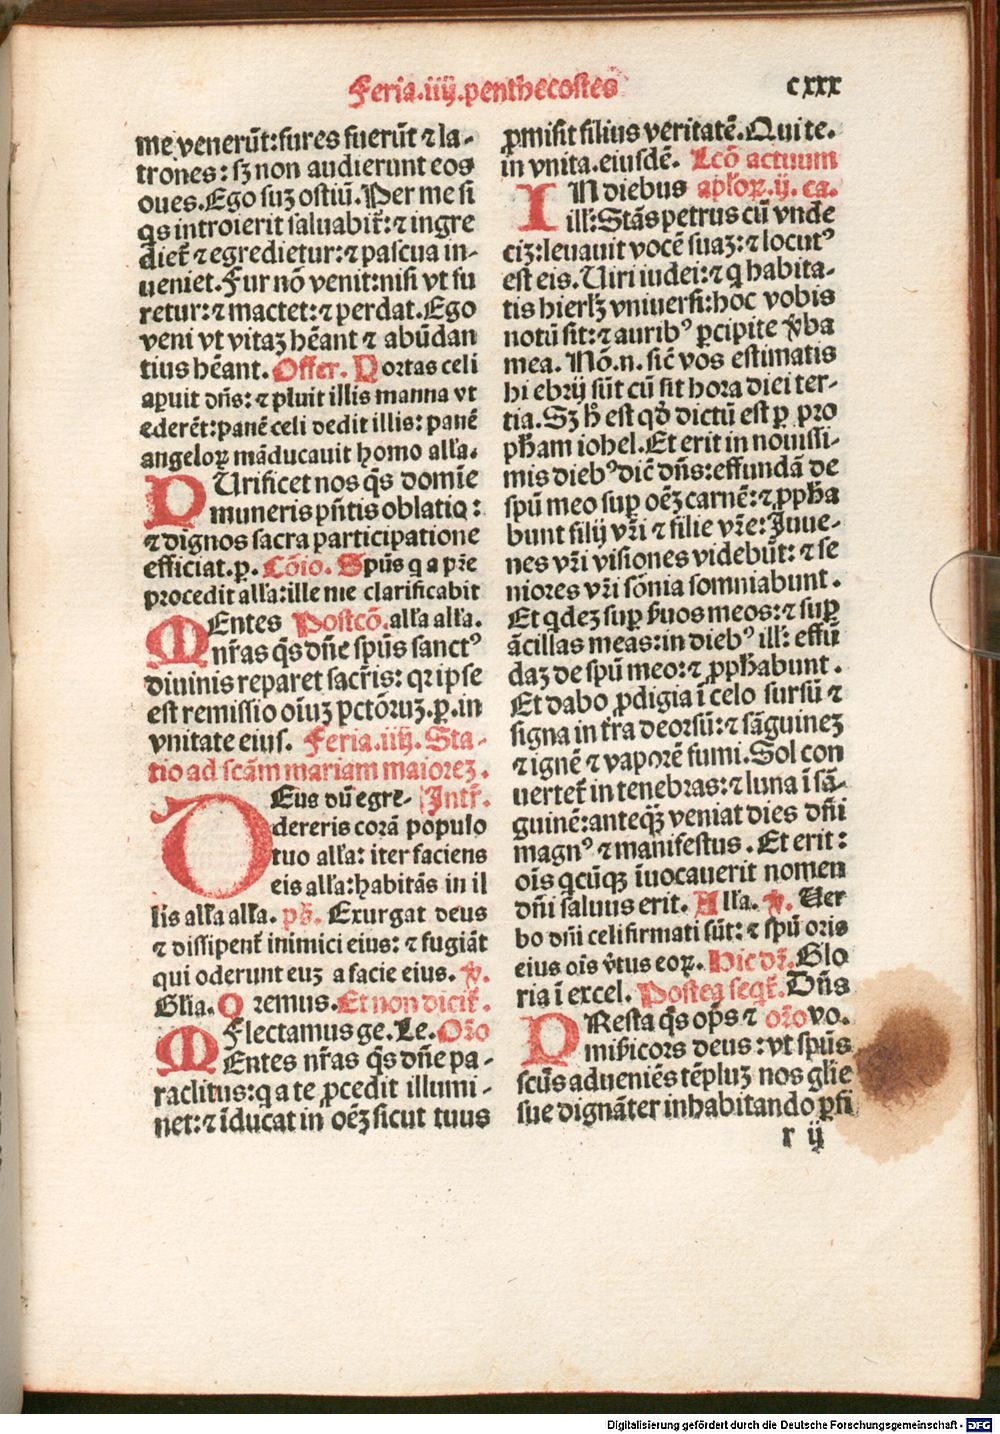 Feria.iiij.penthecostes
cxxx
me venerūt:fures fuerūt ⁊ la-
trones: sꝫ non audierunt eos
oues.Ego suꝫ ostiū.Per me si
q̄s introierit saluabiť: ⁊ ingre
dieť ⁊ egredietur: ⁊ pascua in-
ueniet.Fur nō venit:nisi vt fu
retur: ⁊ mactet: ⁊ perdat.Ego
veni vt vitaꝫ hēant ⁊ abūdan
tius hēant. Offer. Portas celi
aꝑuit dn̄s: ⁊ pluit illis manna vt
ederēt:panē celi dedit illis: panē
angeloꝝ māducauit homo alľa.
PUrificet nos q̄s domīe
muneris pn̄tis oblatio:
⁊ dignos sacra participatione
efficiat.p. Cōio. Spūs q a pr̄e
procedit alľa:ille me clarificabit
MEntes Postcō. alľa alľa.
nr̄as q̄s dn̄e spūs sanctꝰ
diuinis reparet sacr̄is: qr ipse
est remissio oīuꝫ pctōruꝫ.p.in
vnitate eius. Feria.iiij. Sta-
tio ad scām mariam maiorez.
DEus dū egre- Intr̄.
dereris corā populo
tuo alľa: iter faciens
eis alľa:habitās in il
lis alľa alľa. pš. Exurgat deus
⁊ dissipenť inimici eius: ⁊ fugiāt
qui oderunt euꝫ a facie eius. ℣.
Glia. Oremus. Et non diciť.
Flectamus ge. Le. Orō
MEntes nr̄as q̄s dn̄e pa-
raclitus:q a te ꝓcedit illumi-
net: ⁊ īducat in oēꝫ sicut tuus
ꝓmisit filius veritatē.Qui te.
in vnita.eiusdē. Lcō actuum
IN diebus apľoꝝ.ij. ca.
ill̄: Stās petrus cū vnde
ciꝫ:leuauit vocē suaꝫ: ⁊ locutꝰ
est eis. Uiri iudei: ⁊ q habita-
tis hierľꝫ vniuersi:hoc vobis
notū sit: ⁊ auribꝰ ꝑcipite v̄ba
mea. Nō.n. sic̄ vos estimatis
hi ebrij sūt cū sit hora diei ter-
tia. Sꝫ h̄ est qd̄ dictū est ꝑ pro
pham iohel.Et erit in nouissi-
mis diebꝰ dic̄ dn̄s:effundā de
spū meo suꝑ oēꝫ carnē: ⁊ ꝓpha
bunt filij vr̄i ⁊ filie vr̄e: Iuue-
nes vr̄i visiones videbūt: ⁊ se
niores vr̄i sōnia somniabunt.
Et qdez suꝑ ẜuos meos: ⁊ suꝑ
ācillas meas:in diebꝰ ill̄: effū
daꝫ de spū meo: ⁊ ꝓphabunt.
Et dabo ꝓdigia ī celo sursū ⁊
signa in ťra deorsū: ⁊ sāguinez
⁊ ignē ⁊ vaporē fumi.Sol con
uerteť in tenebras: ⁊ luna ī sā-
guinē:anteqꝫ veniat dies dn̄i
magnꝰ ⁊ manifestus. Et erit:
oīs qcūqꝫ īuocauerit nomen
dn̄i saluus erit. Alľa. ℣. Uer
bo dn̄i celi firmati sūt: ⁊ spū oris
eius oīs v̄tus eoꝝ. Hic dr̄. Glo
ria ī excel. Postea seqť. Dn̄s
PResta q̄s op̄s ⁊ orō vo.
mīẜicors deus: vt spūs
scūs adueniēs tēpluꝫ nos glie
sue dignāter inhabitando ꝑfi
r ij
Digitalisierung gefördert durch die Deutsche Forschungsgemeinschaft - DFG